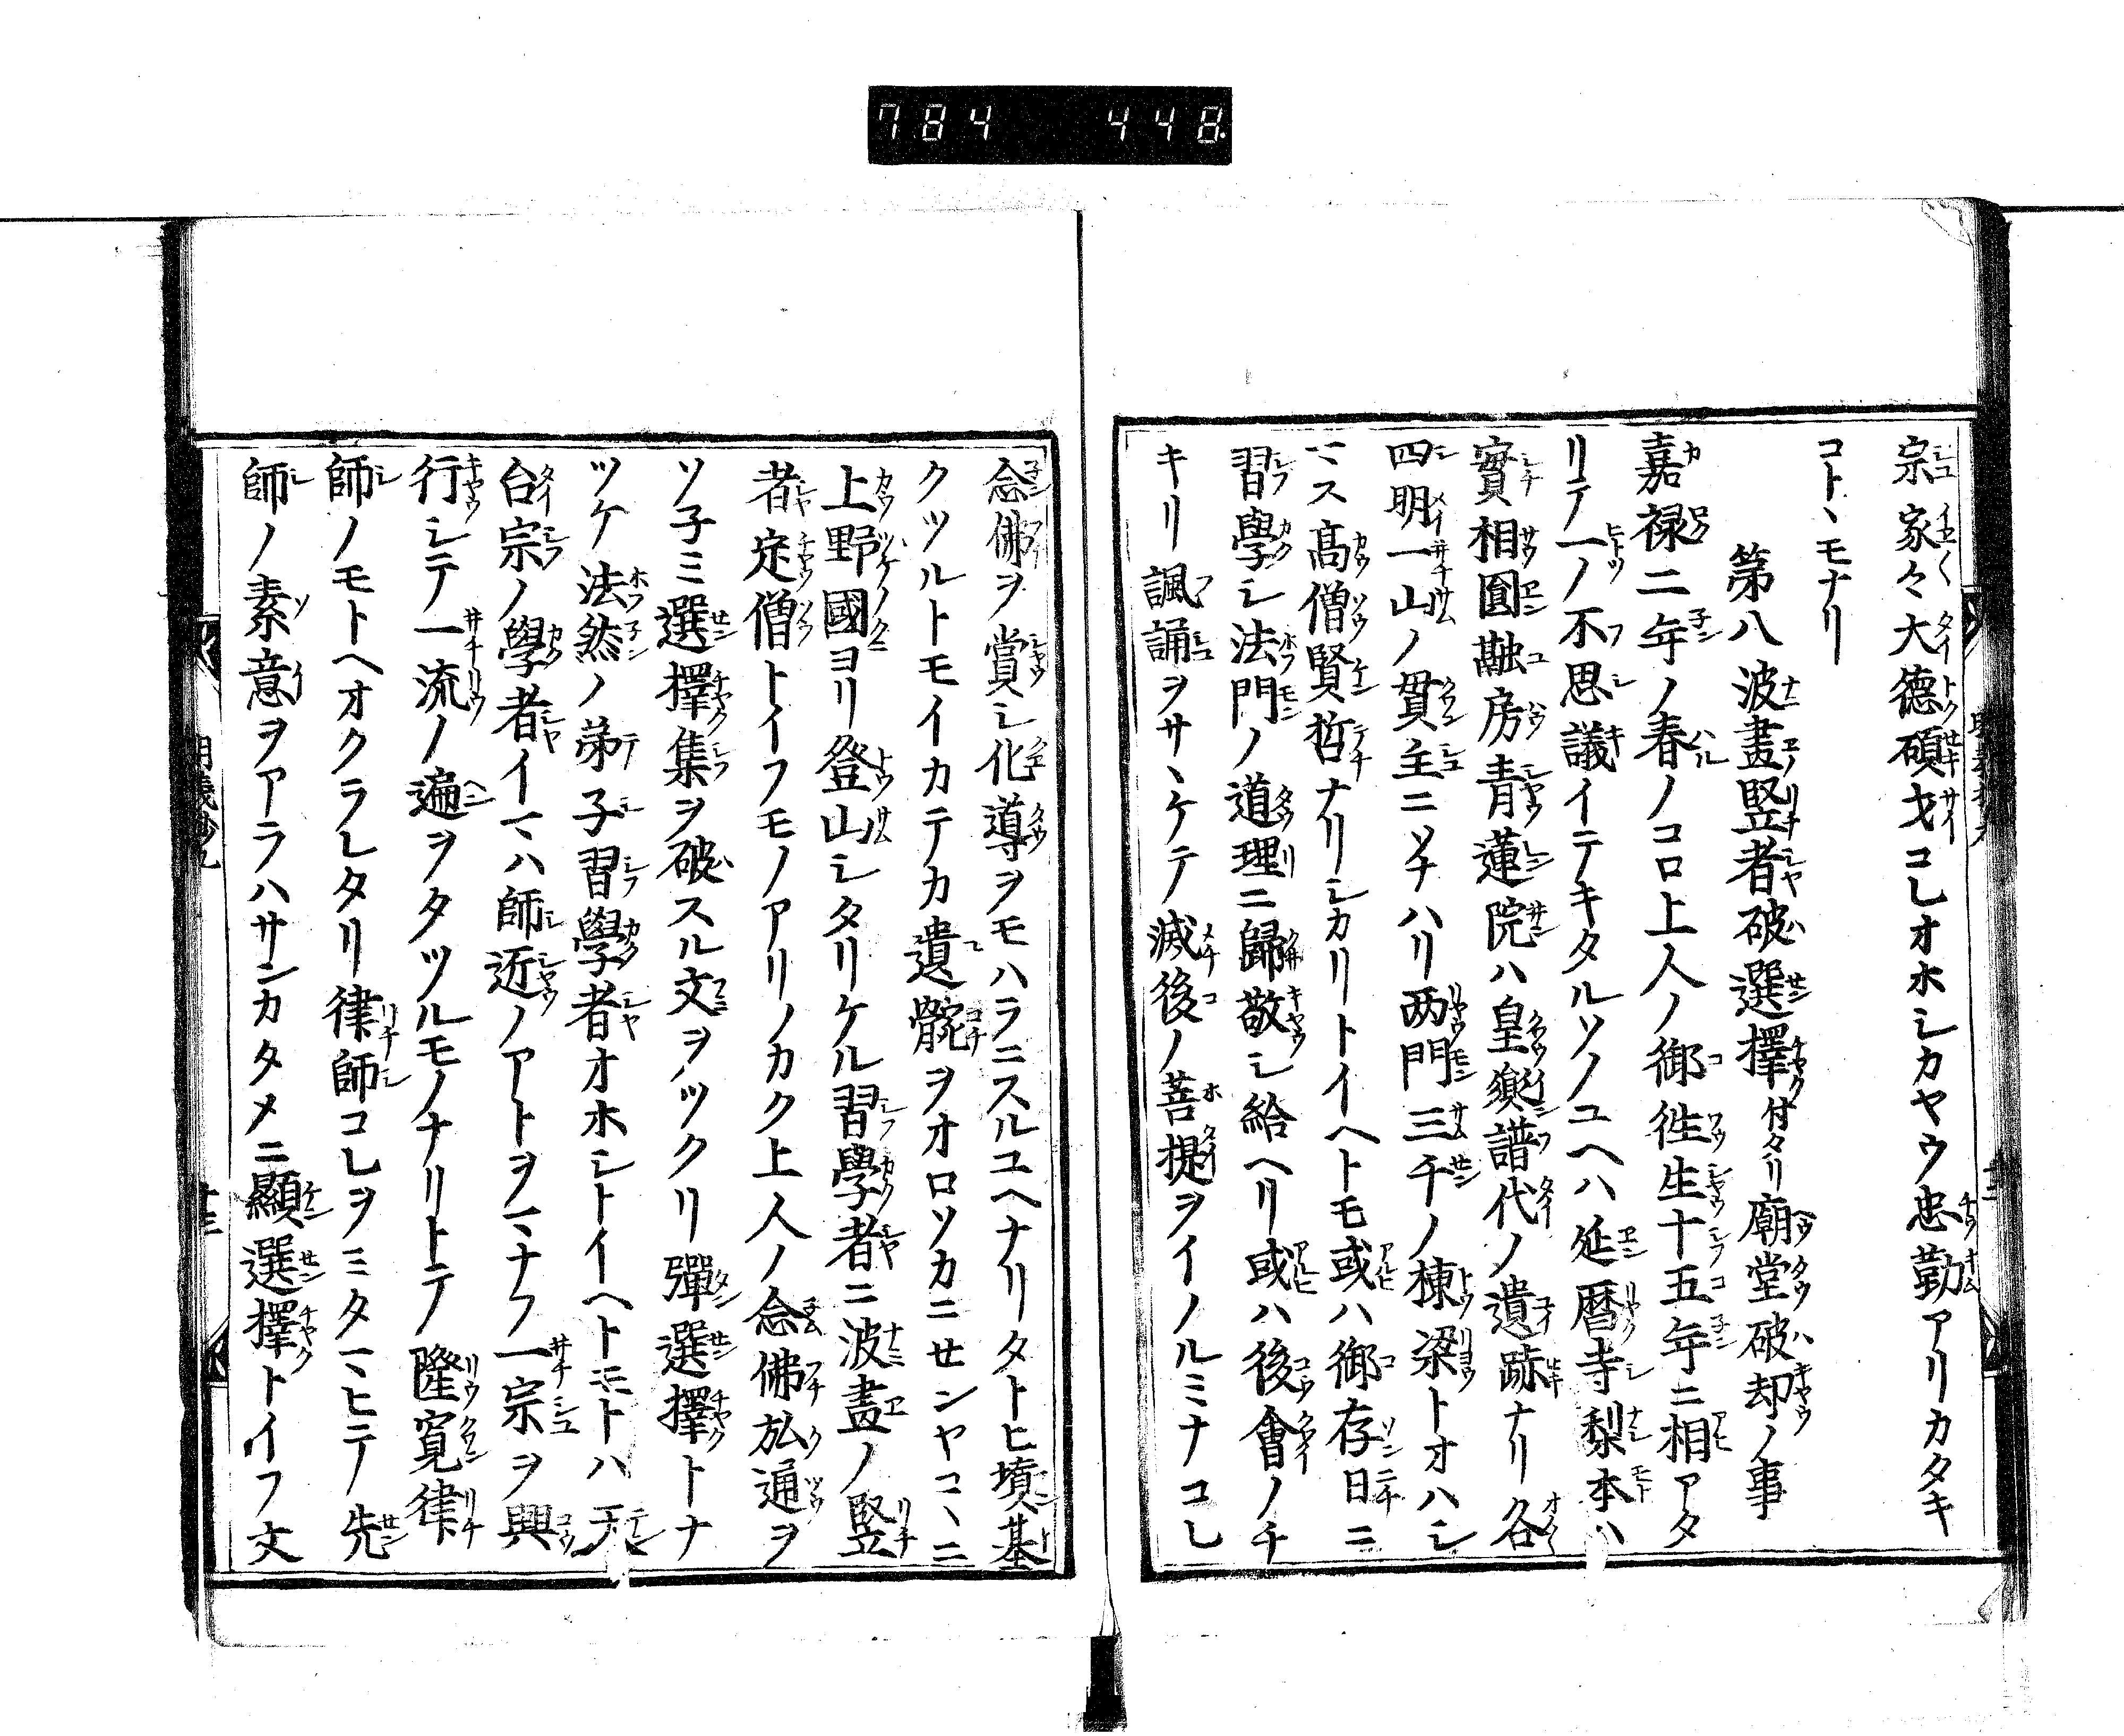 784 448
宗家々大徳碩才コレオホシカヤウ忠勤アリカタキ
コトヽモナリ
第八波畫竪者破選擇付タリ廟堂破却ノ事
嘉禄二年ノ春ノコロ上人ノ御徃生十五年ニ相アタ
リテ一ノ不思議イテキタルソノユヘハ延暦寺梨本ハ
實相圓融房青蓮院ハ皇胤譜代ノ遺跡ナリ各
四明一山ノ貫主ニソナハリ两門三千ノ棟梁トオハシ
マス髙僧賢哲ナリシカリトイヘトモ或ハ御存日ニ
習學シ法門ノ道理ニ歸敬シ給ヘリ或ハ後會ノチ
キリ諷誦ヲサヽケテ滅後ノ菩提ヲイノルミナコレ
念佛ヲ賞シ化導ヲモハラニスルユヘナリタトヒ墳基
クツルトモイカテカ遺骴ヲオロソカニセンヤコヽニ
上野國ヨリ登山シタリケル習學者ニ波畫ノ竪
者定僧トイフモノアリノカク上人ノ念佛弘通ヲ
ソ子ミ選擇集ヲ破スル文ヲツクリ彈選擇トナ
ツケ法然ノ弟子習學者オホシトイヘトモモトハ天
台宗ノ學者イマハ師近ノアトヲマナフ一宗ヲ興
行シテ一流ノ遍ヲタツルモノナリトテ隆寛律
師ノモトヘオクラレタリ律師コレヲミタマヒテ先
師ノ素意ヲアラハサンカタメニ顯選擇トイフ文